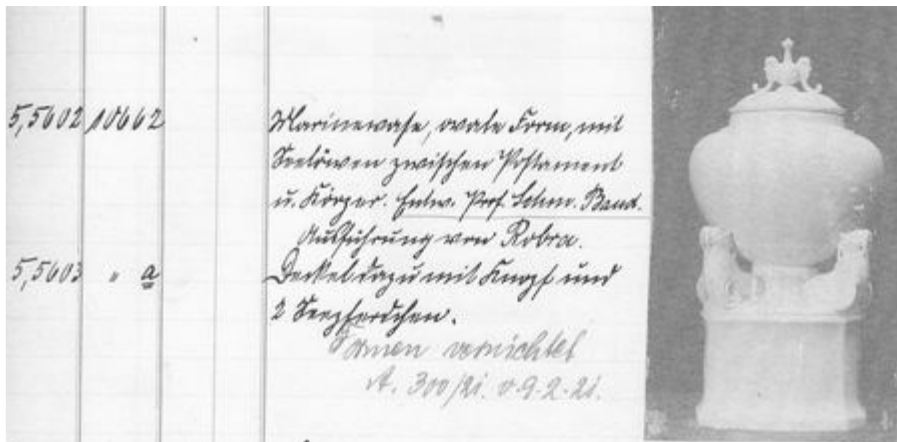 5,5602 10662 Marinevase, ovale Form, mit
Seelöwen zwischen Postament
u. Körper. Entw. Prof. Schm. Baud.
Ausführung von Robra.
5,5603 " a Deckel dazu mit Knopf und
2 Seepferdchen.
Formen vernichtet
A. 300/21. v. 9.2.21.